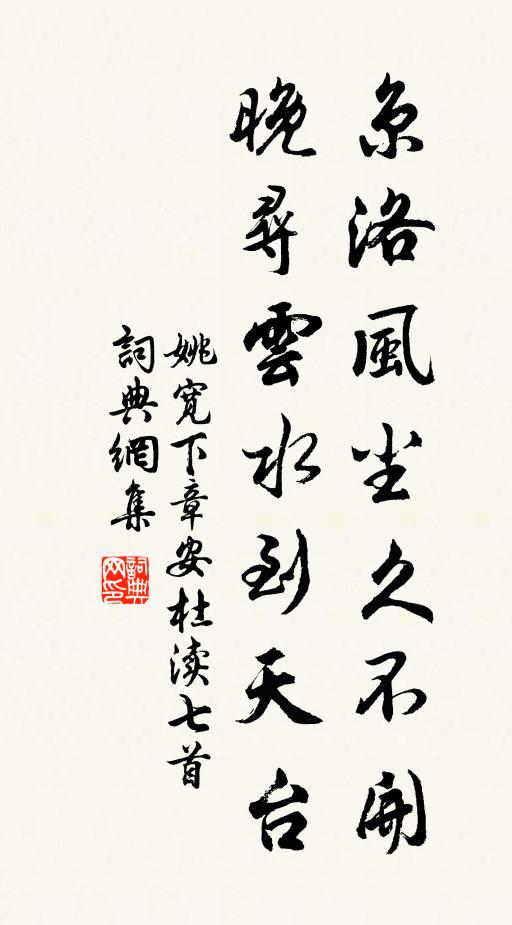 京洛風尘久不開
晚尋雲水到天台
姚寬下章安杜渎七首
詞典網集
詞典网印